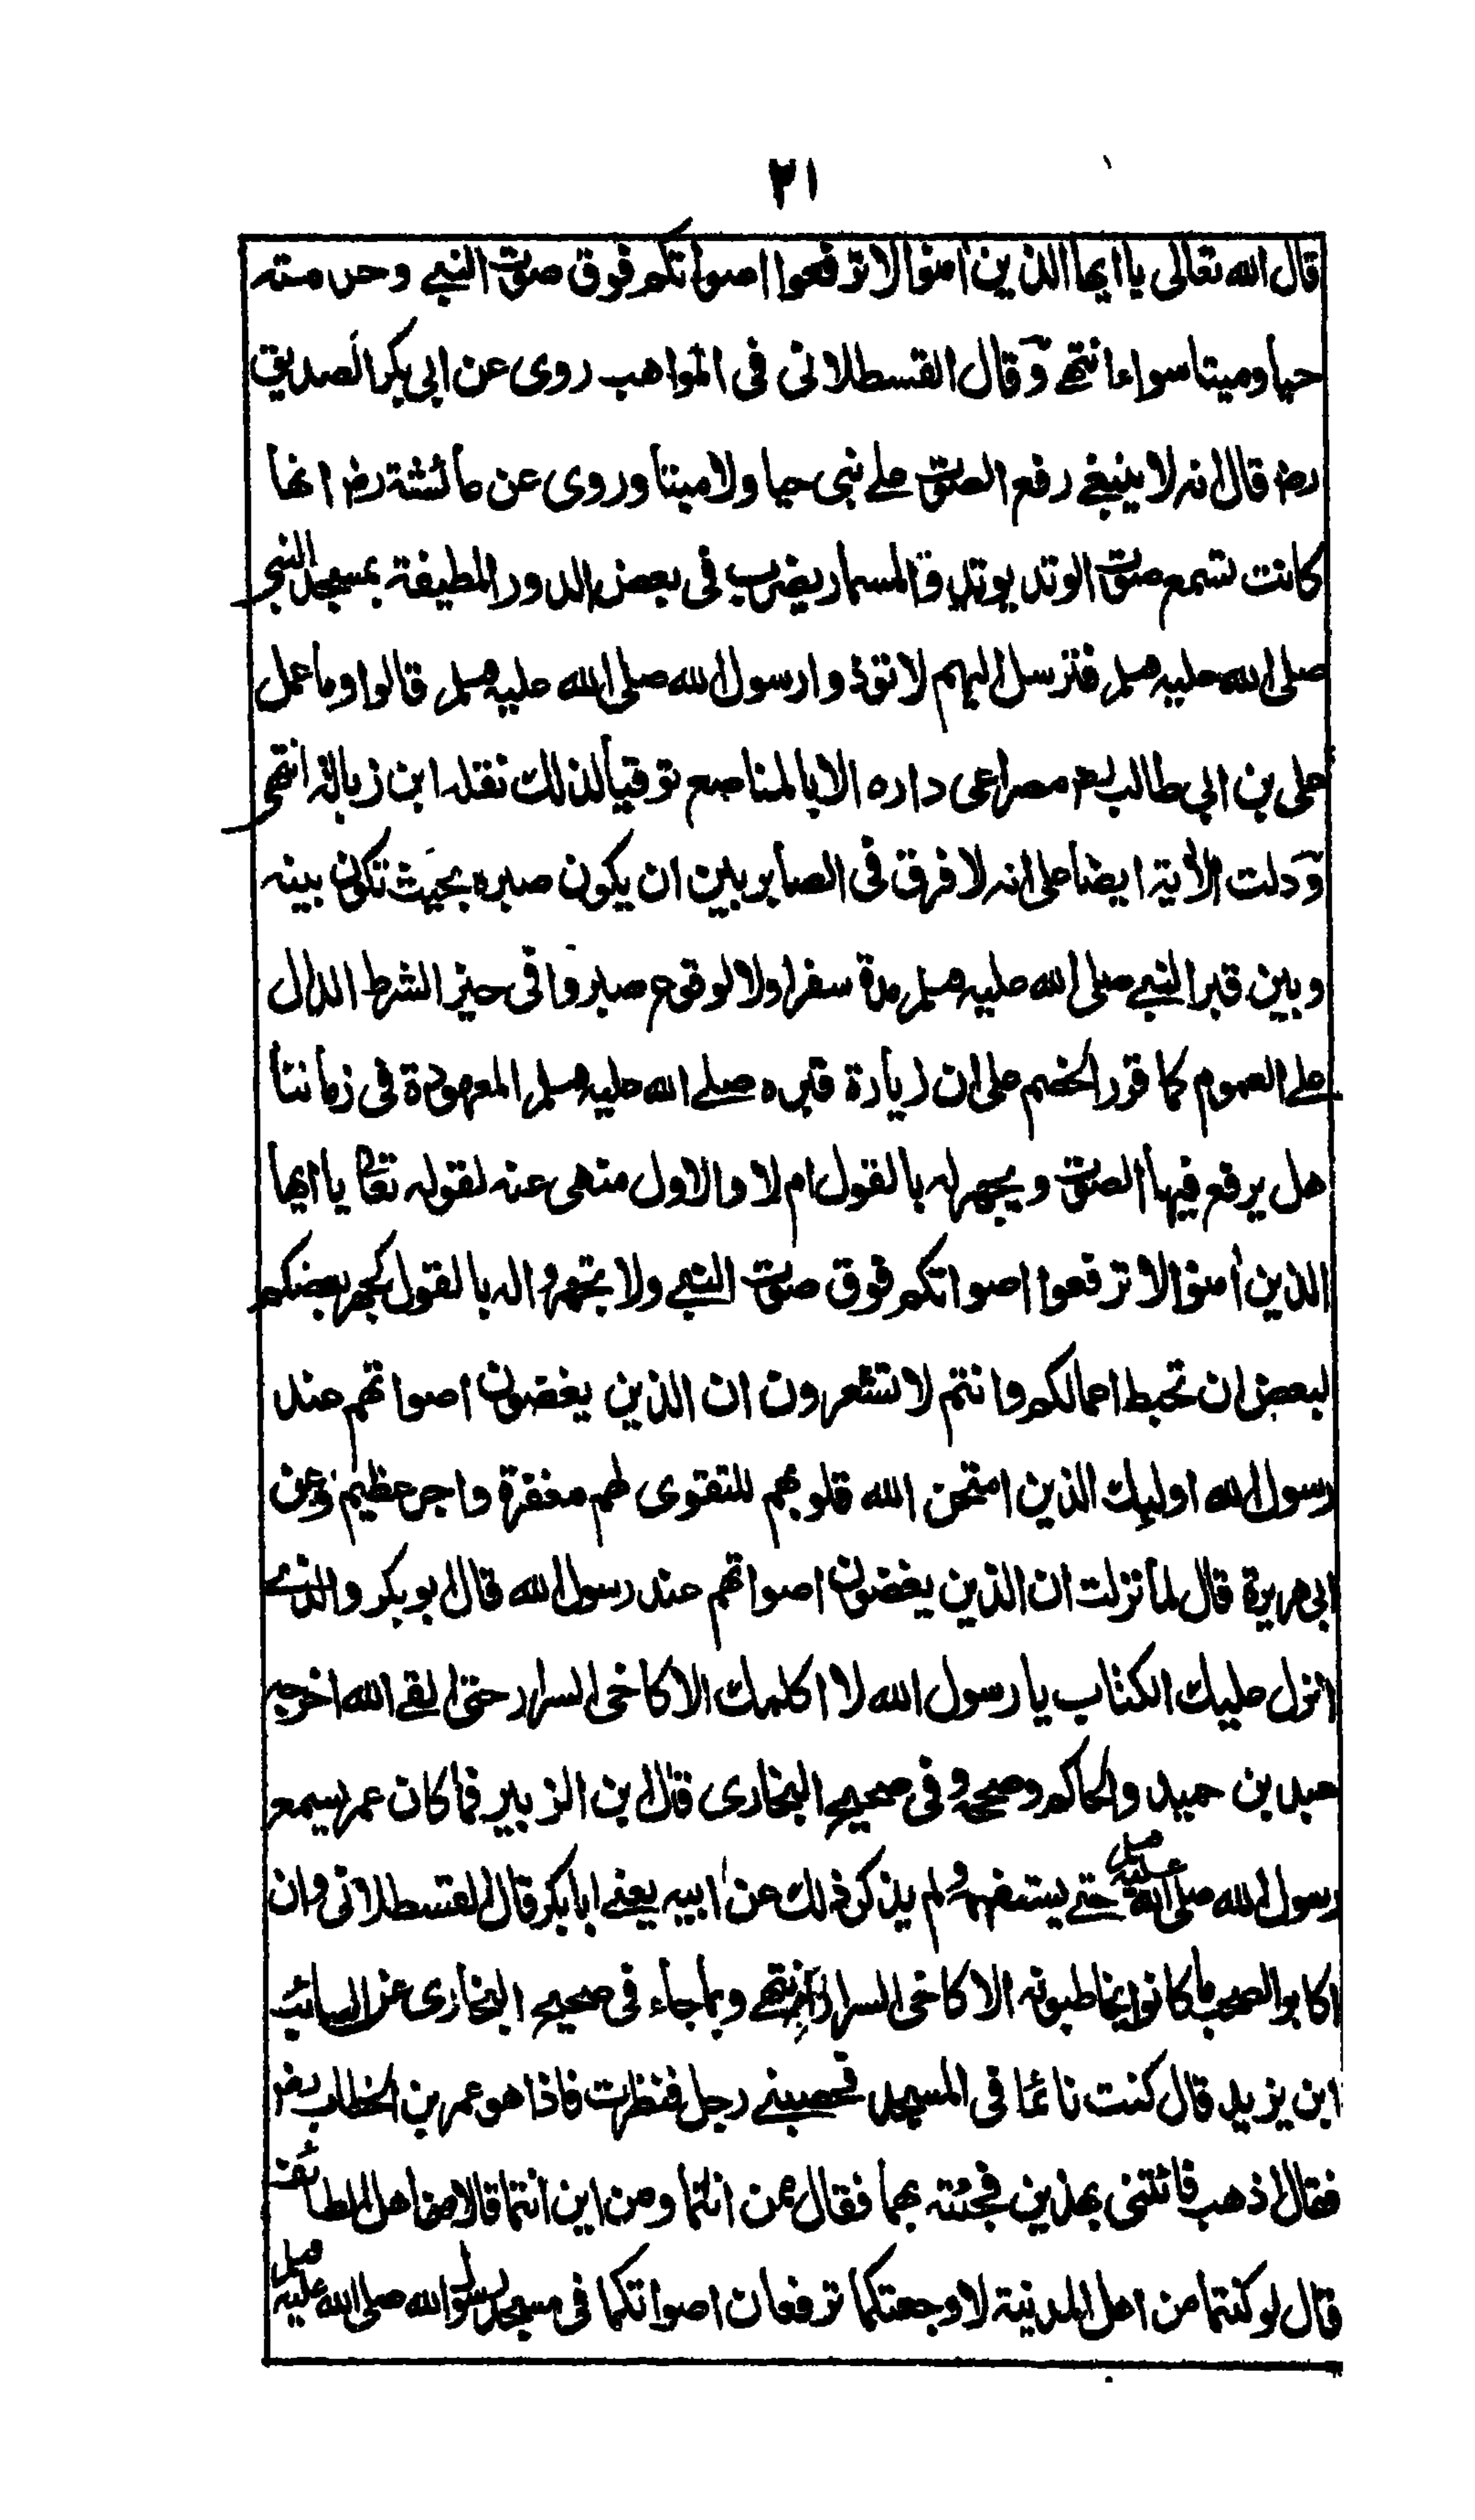 ٢١
قال الله تعالى يا ايها الذين امنوا لا ترفعوا اصواتكم فوق صوت النبي وحرمته
حيا وميتا سواء انتهى وقال القسطلانى فى المواهب روى عن ابى بكر الصديق
رض قال انه لا ينبغي رفع الصوت على نبى حيا ولا ميتا وروى عن عائشة رض انها
كانت تسمع صوت الوتد يوتد والمسمار يضرب فى بعض الدور المطيفة بمسجد النبي
صلى الله عليه وسلم فترسل اليهم لا تؤذوا رسول الله صلى الله عليه وسلم قالوا وما عمل
على بن ابى طالب رض مصراعى داره الا بالمناصع توقيا لذلك نقله ابن زبالة انتهى
ودلت الآية ايضا على انه لا فرق فى الصابر بين ان يكون صبره بحيث تكون بينه
وبين قبر النبي صلى الله عليه وسلم مدة سفر اولا لوقوع صبروا فى حيز الشرط الدال
على العموم كما قرر الخصم على ان زيارة قبره صلى الله عليه وسلم المعهودة فى زماننا
هل يرفع فيها الصوت ويجهر له بالقول ام لا والاول منهى عنه لقوله تعالى يا ايها
الذين امنوا لا ترفعوا اصواتكم فوق صوت النبي ولا تجهروا له بالقول كجهر بعضكم
لبعض ان تحبط اعمالكم وانتم لا تشعرون ان الذين يغضون اصواتهم عند
رسول الله اوليك الذين امتحن الله قلوبهم للتقوى لهم مغفرة واجر عظيم وعن
ابى هريرة قال لما نزلت ان الذين يغضون اصواتهم عند رسول الله قال ابو بكر والذي
انزل عليك الكتاب يا رسول الله لا اكلمك الا كاخى السرار حتى القى الله اخرجه
عبد بن حميد والحاكم وصححه وفى صحيح البخارى قال ابن الزبير فما كان عمر يسمع
رسول الله صلى الله عليه وسلم حتى يستفهمه ولم يذكر ذلك عن ابيه يعني ابا بكر قال القسطلانى وان
اكابر الصحب ما كانوا يخاطبونه الا كاخى السرار انتهى وبما جاء فى صحيح البخارى عن السائب
ابن يزيد قال كنت نائما فى المسجد فحصبني رجل فنظرت فاذا هو عمر بن الخطاب رض
فقال اذهب فائتنى بهذين فجئته بهما فقال عن انتما ومن اين انتما قالا من اهل الطائف
قال لو كنتما من اهل المدينة لاوجعتكما ترفعان اصواتكما فى مسجد رسول الله صلى الله عليه وسلم